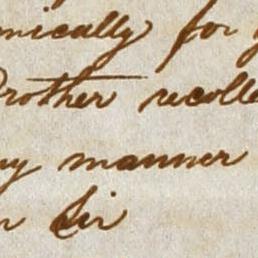 nically for y
Brother recolle
ny manner
n Sir